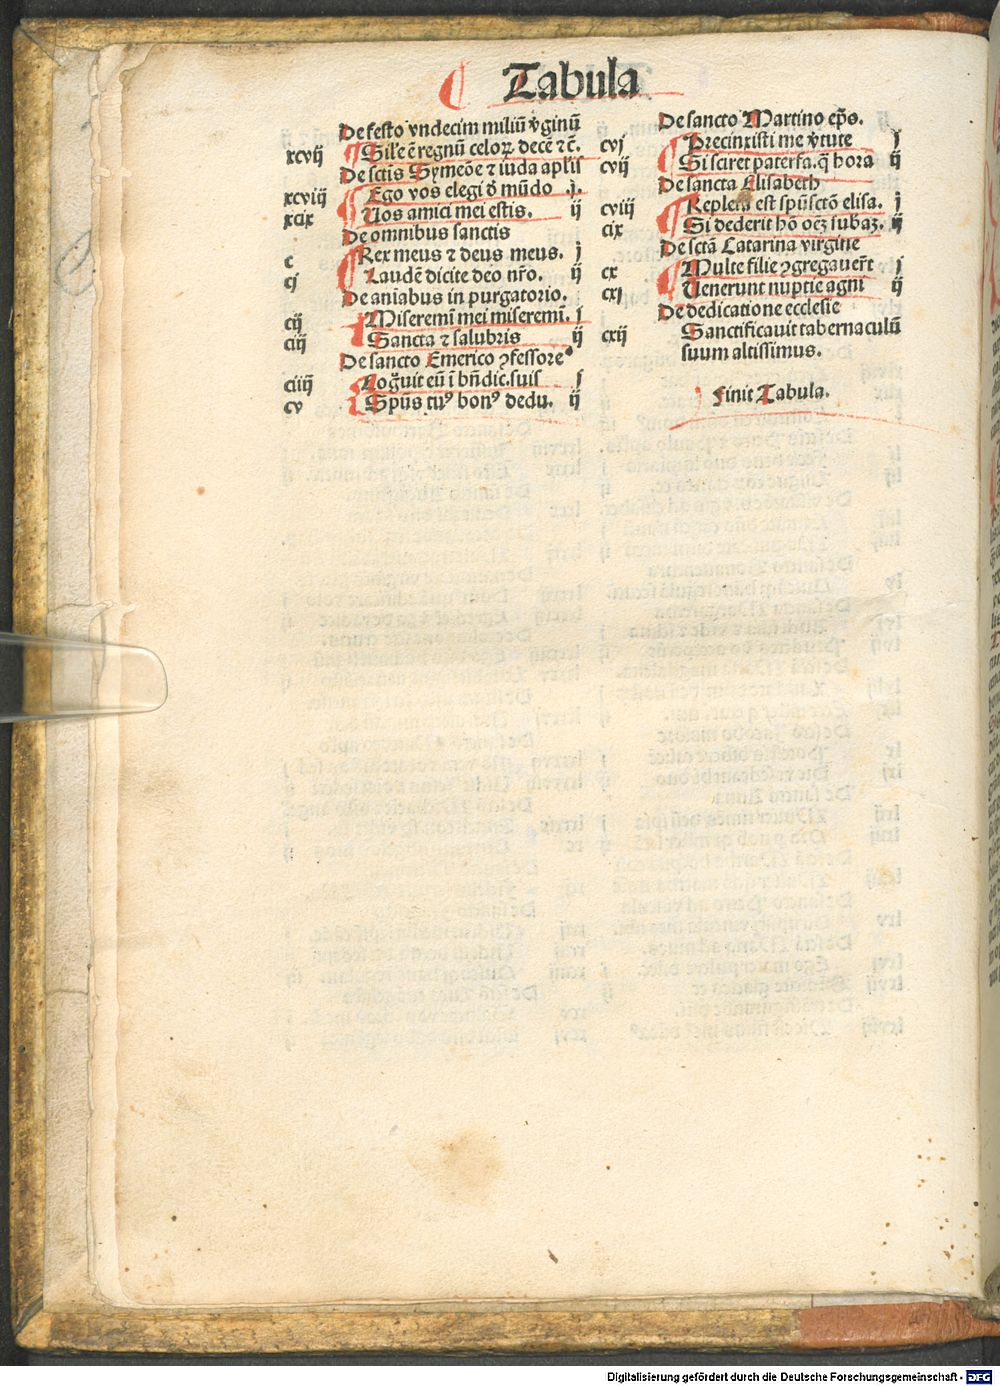 Tabula
De festo vndecim miliū v̄ginū
xcvij Sil'e ē regnū celoꝝ decē ⁊ c̄.
De sctis Symeōe ⁊ iuda aplis
xcviij Ego vos elegi d̄ mūdo j.
xcix Uos amici mei estis. ij
De omnibus sanctis
c Rex meus ⁊ deus meus. j
cj Laudē dicite deo nr̄o. ij
De aniabus in purgatorio.
cij Miseremī mei miseremī. j
ciij Sancta ⁊ salubris ij
De sancto Emerico ꝯfessore
ciiij eū ī bn̄dic. suis j
cv Spūs tuꝰ bonꝰ dedu. ij
De sancto Martino ep̄s.
cvj Precinxisti me v̄tute j
cvij Si sciret paterfa. q̄ hora ij
De sancta Elisabeth
cviij Repleta est spūsctō elisa. j
cix Si dederit hō oēʒ subaʒ. ij
De sctā Catarina virgine
cx Multe filie ꝯgregauer̄t j
cxj Uenerunt nuptie agni ij
De dedicatione ecclesie
cxij Sanctificauit tabernaculū
suum altissimus.
Finit Tabula.
Digitalisierung gefördert durch die Deutsche Forschungsgemeinschaft - DFG